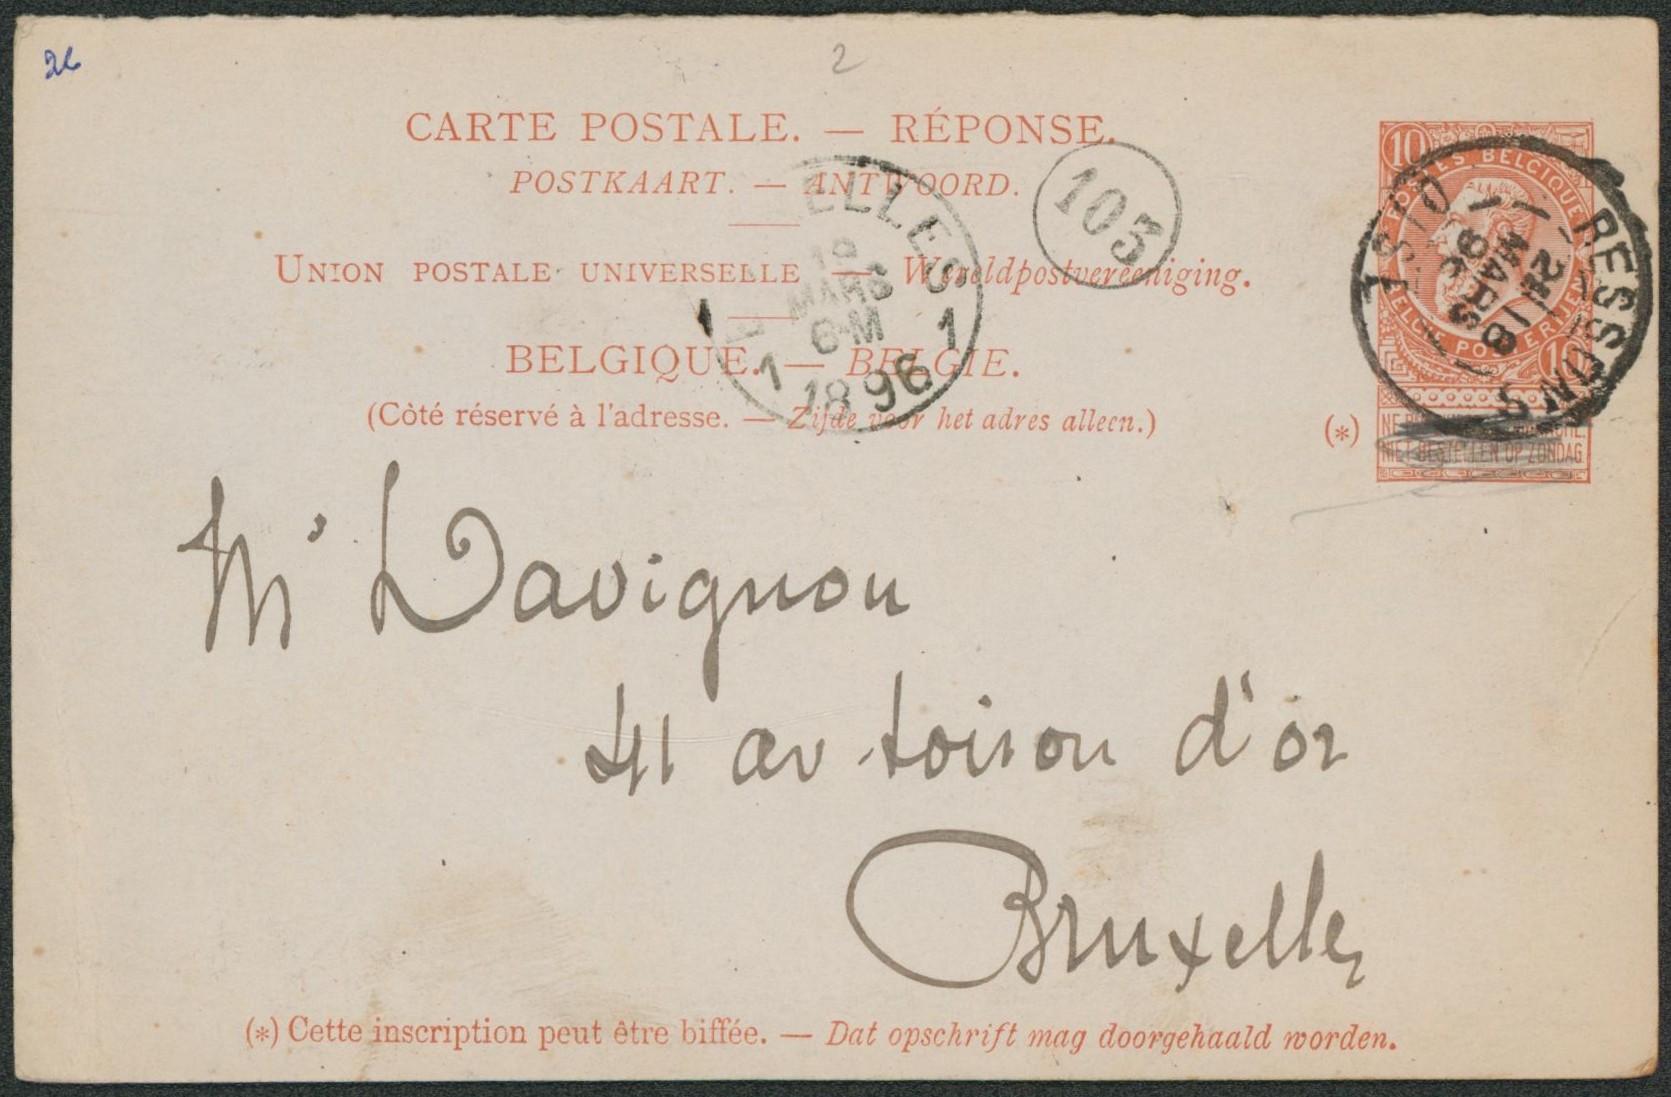 26
2
CARTE POSTALE. — RÉPONSE.
POSTKAART. — ANTWOORD.
UNION POSTALE UNIVERSELLE — Wereldpostvereeniging.
BELGIQUE. — BELGIE.
(Côté réservé à l'adresse. — Zijde voor het adres alleen.)
103
ELLES
19
MARS
6-M
1 1896 1
10
POSTES BELGIQUE
BELGIE POSTERIJEN
RESSONS
OISE
18
MARS
(*)
NIET BESTELLEN OP ZONDAG
Mr Davignon
41 av toison d'or
Bruxelles
(*) Cette inscription peut être biffée. — Dat opschrift mag doorgehaald worden.